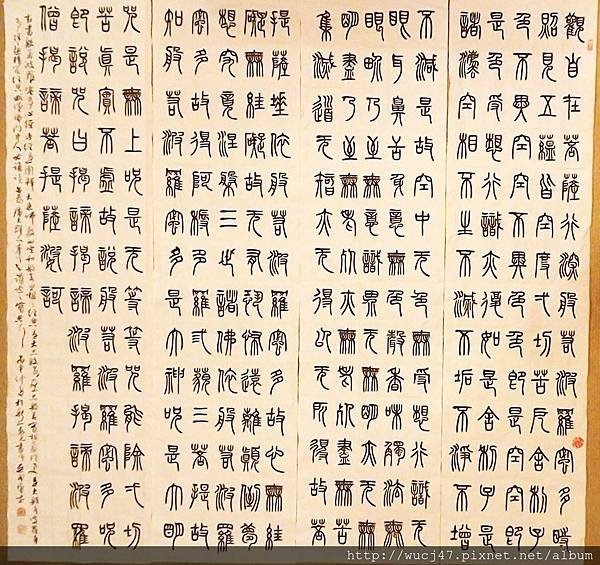 觀自在菩薩行深般若波羅密多時
照見五蘊皆空度一切苦厄舍利子
色不異空空不異色色即是空空即
是色受想行識亦復如是舍利子是
諸法空相不生不滅不垢不淨不增
不減是故空中無色無受想行識無
眼耳鼻舌身意無色聲香味觸法無
眼界乃至無意識界無無明亦無無
明盡乃至無老死亦無老死盡無苦
集滅道無智亦無得以無所得故菩
提薩埵依般若波羅密多故心無罣
礙無罣礙故無有恐怖遠離顛倒夢
想究竟涅槃三世諸佛依般若波羅
密多故得阿耨多羅三藐三菩提故
知般若波羅密多是大神咒是大明
咒是無上咒是無等等咒能除一切
苦真實不虛故說般若波羅密多咒
即說咒曰揭諦揭諦波羅揭諦波羅
僧揭諦菩提薩婆訶
http://wucj47.pixnet.net/album